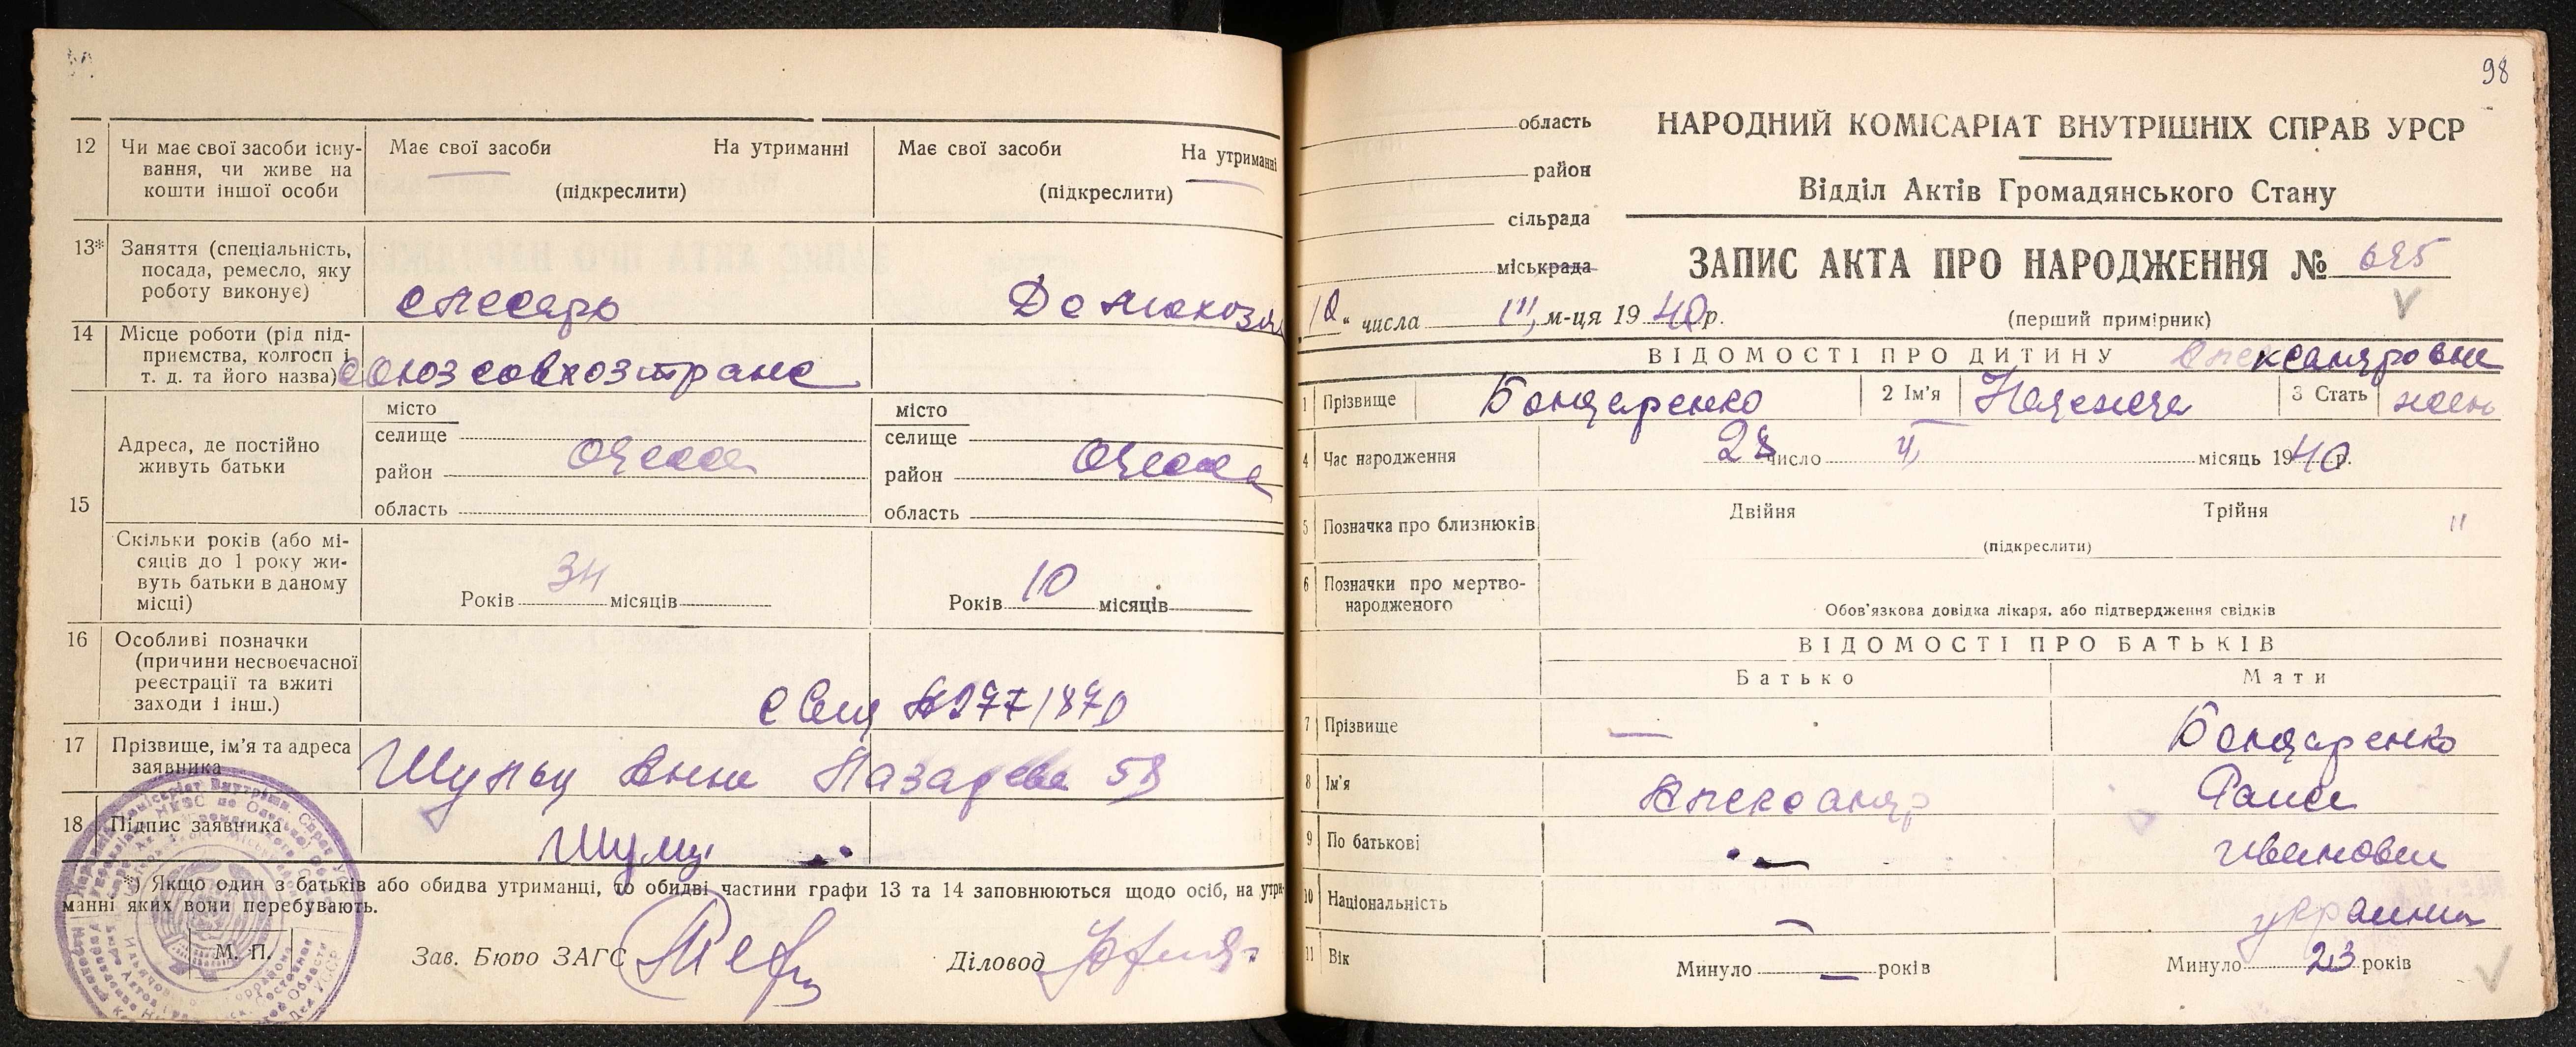 12 Чи має свої засоби існу-
вання, чи живе на
кошти іншої особи
Має свої засоби На утриманні
(підкреслити)
Має свої засоби На утриманні
(підкреслити)
13* Заняття (спеціальність,
посада, ремесло, яку
роботу виконує)
слесарь
Домохозя
14 Місце роботи (рід під-
приємства, колгосп і
т. д. та його назва)
Союзсовхозтранс
15
Адреса, де постійно
живуть батьки
місто
селище
район
область
Одесса
місто
селище
район
область
Одесса
Скільки років (або мі-
сяців до 1 року жи-
вуть батьки в даному
місці)
Років 34 місяців
Років 10 місяців
16 Особливі позначки
(причини несвоєчасної
реєстрації та вжиті
заходи і інш.)
17 Прізвище, ім'я та адреса
заявника
Шульц Анна Лазарева 53
18 Підпис заявника
*) Якщо один з батьків або обидва утриманці, то обидві частини графи 13 та 14 заповнюються щодо осіб, на утри-
манні яких вони перебувають.
М. П.
Зав. Бюро ЗАГС
Діловод
98
область
район
сільрада
міськрада
НАРОДНИЙ КОМІСАРІАТ ВНУТРІШНІХ СПРАВ УРСР
Відділ Актів Громадянського Стану
ЗАПИС АКТА ПРО НАРОДЖЕННЯ № 695
10 " числа III м-ця 1940 р.
(перший примірник)
ВІДОМОСТІ ПРО ДИТИНУ
Александровна
1 Прізвище Бондаренко 2 Ім'я Надежда 3 Стать жен
4 Час народження 28 число II місяць 1940 р.
5 Позначка про близнюків Двійня Трійня
(підкреслити)
6 Позначки про мертво-
народженого
Обов'язкова довідка лікаря, або підтвердження свідків
ВІДОМОСТІ ПРО БАТЬКІВ
Батько Мати
7 Прізвище — Бондаренко
8 Ім'я Александр Раиса
9 По батькові — Ивановна
10 Національність — украинка
11 Вік Минуло — років Минуло 23 років